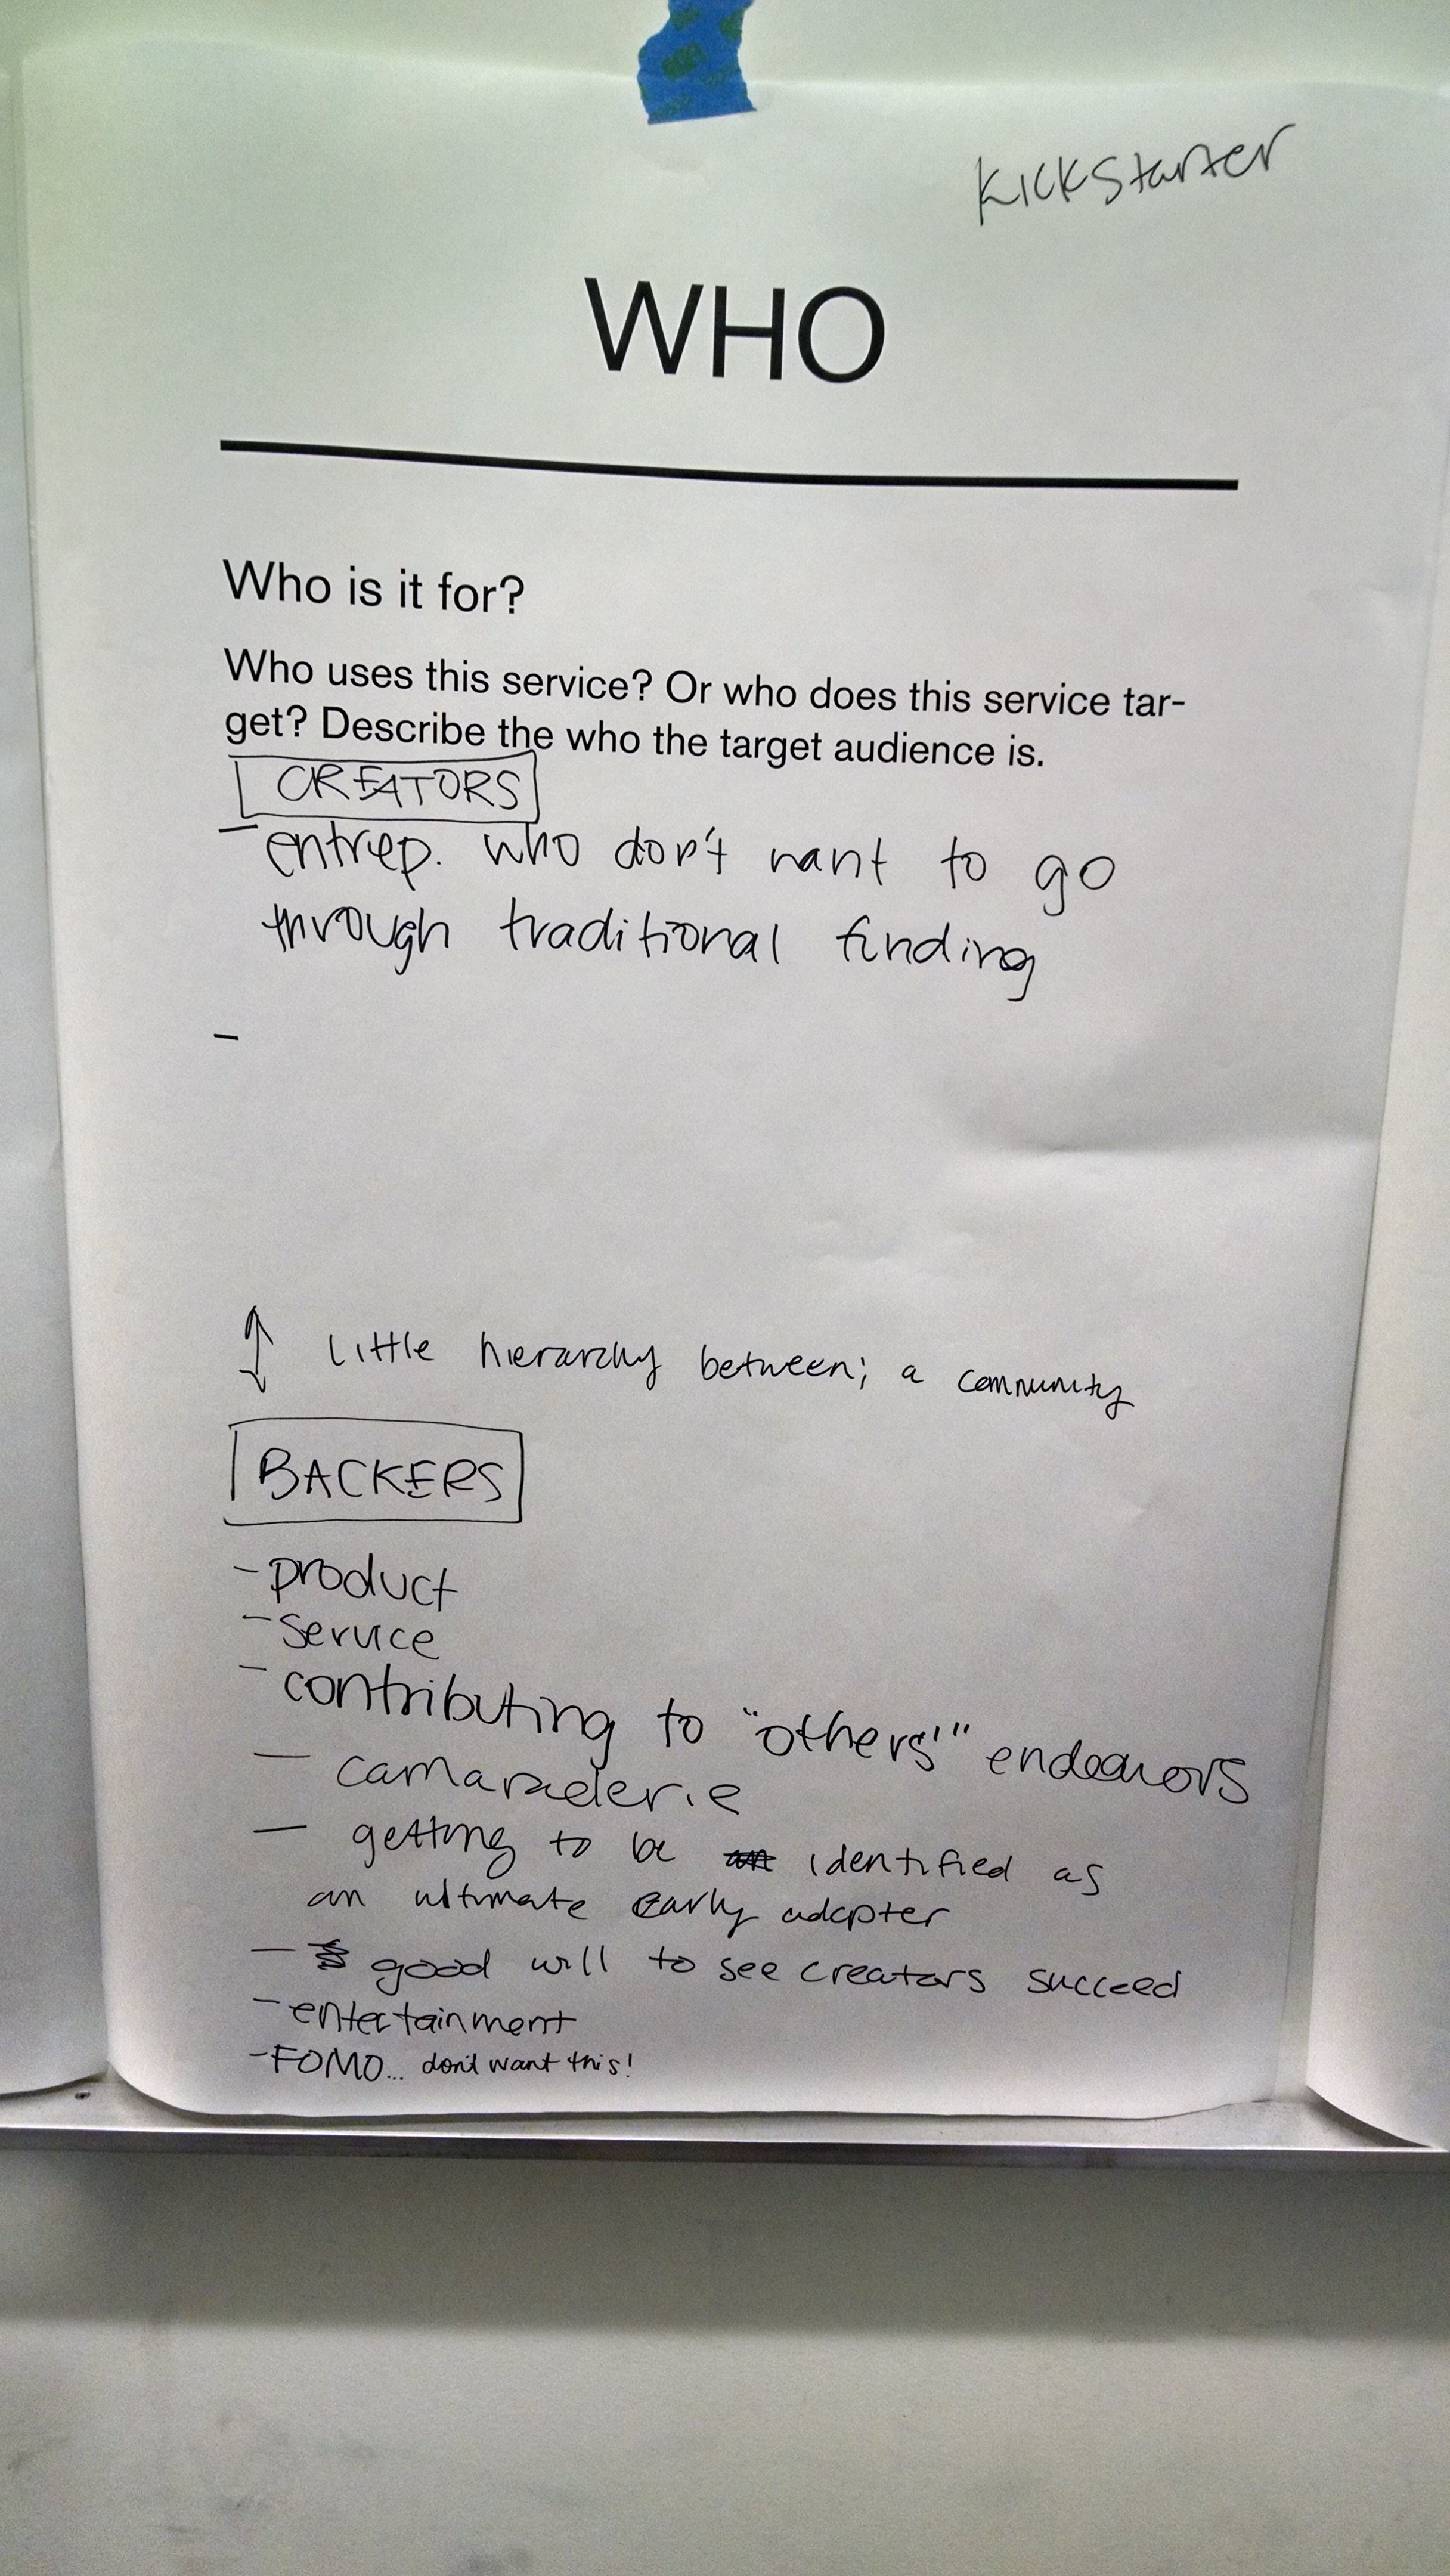 KICKStarter
WHO
Who is it for?
Who uses this service? Or who does this service tar-
get? Describe the who the target audience is.
CREATORS
- entrep. who don't want to go
through traditional funding
-
↕ little hierarchy between; a community
BACKERS
- product
- service
- contributing to "others'" endeavors
- camaraderie
- getting to be identified as
an ultimate early adopter
- good will to see creators succeed
- entertainment
- FOMO... don't want this!